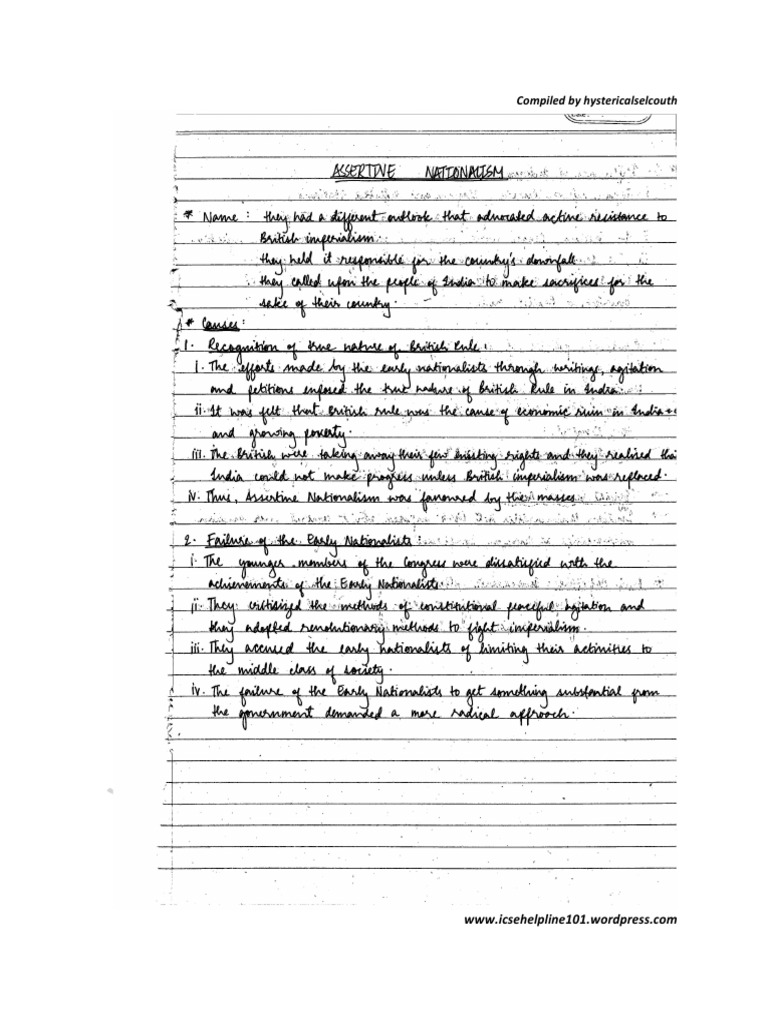 Compiled by hystericalselcouth
ASSERTIVE NATIONALISM
* Name : they had a different outlook that advocated active resistance to
British imperialism.
they held it responsible for the country's downfall.
they called upon the people of India to make sacrifices for the
sake of their country.
* Causes :
1. Recognition of true nature of British Rule :
i. The efforts made by the early nationalists through writings, agitation
and petitions exposed the true nature of British Rule in India.
ii. It was felt that British rule was the cause of economic ruin in India
and growing poverty.
iii. The British were taking away their few existing rights and they realised tha
India could not make progress unless British imperialism was replaced.
iv. Thus, Assertive Nationalism was favoured by the masses.
2. Failure of the Early Nationalists :
i. The younger members of the Congress were dissatisfied with the
achievements of the Early Nationalists.
ii. They critisized the methods of constitutional peaceful agitation and
they adopted revolutionary methods to fight imperialism.
iii. They accused the early nationalists of limiting their activities to
the middle class of society.
iv. The failure of the Early Nationalists to get something substantial from
the government demanded a more radical approach.
www.icsehelpline101.wordpress.com